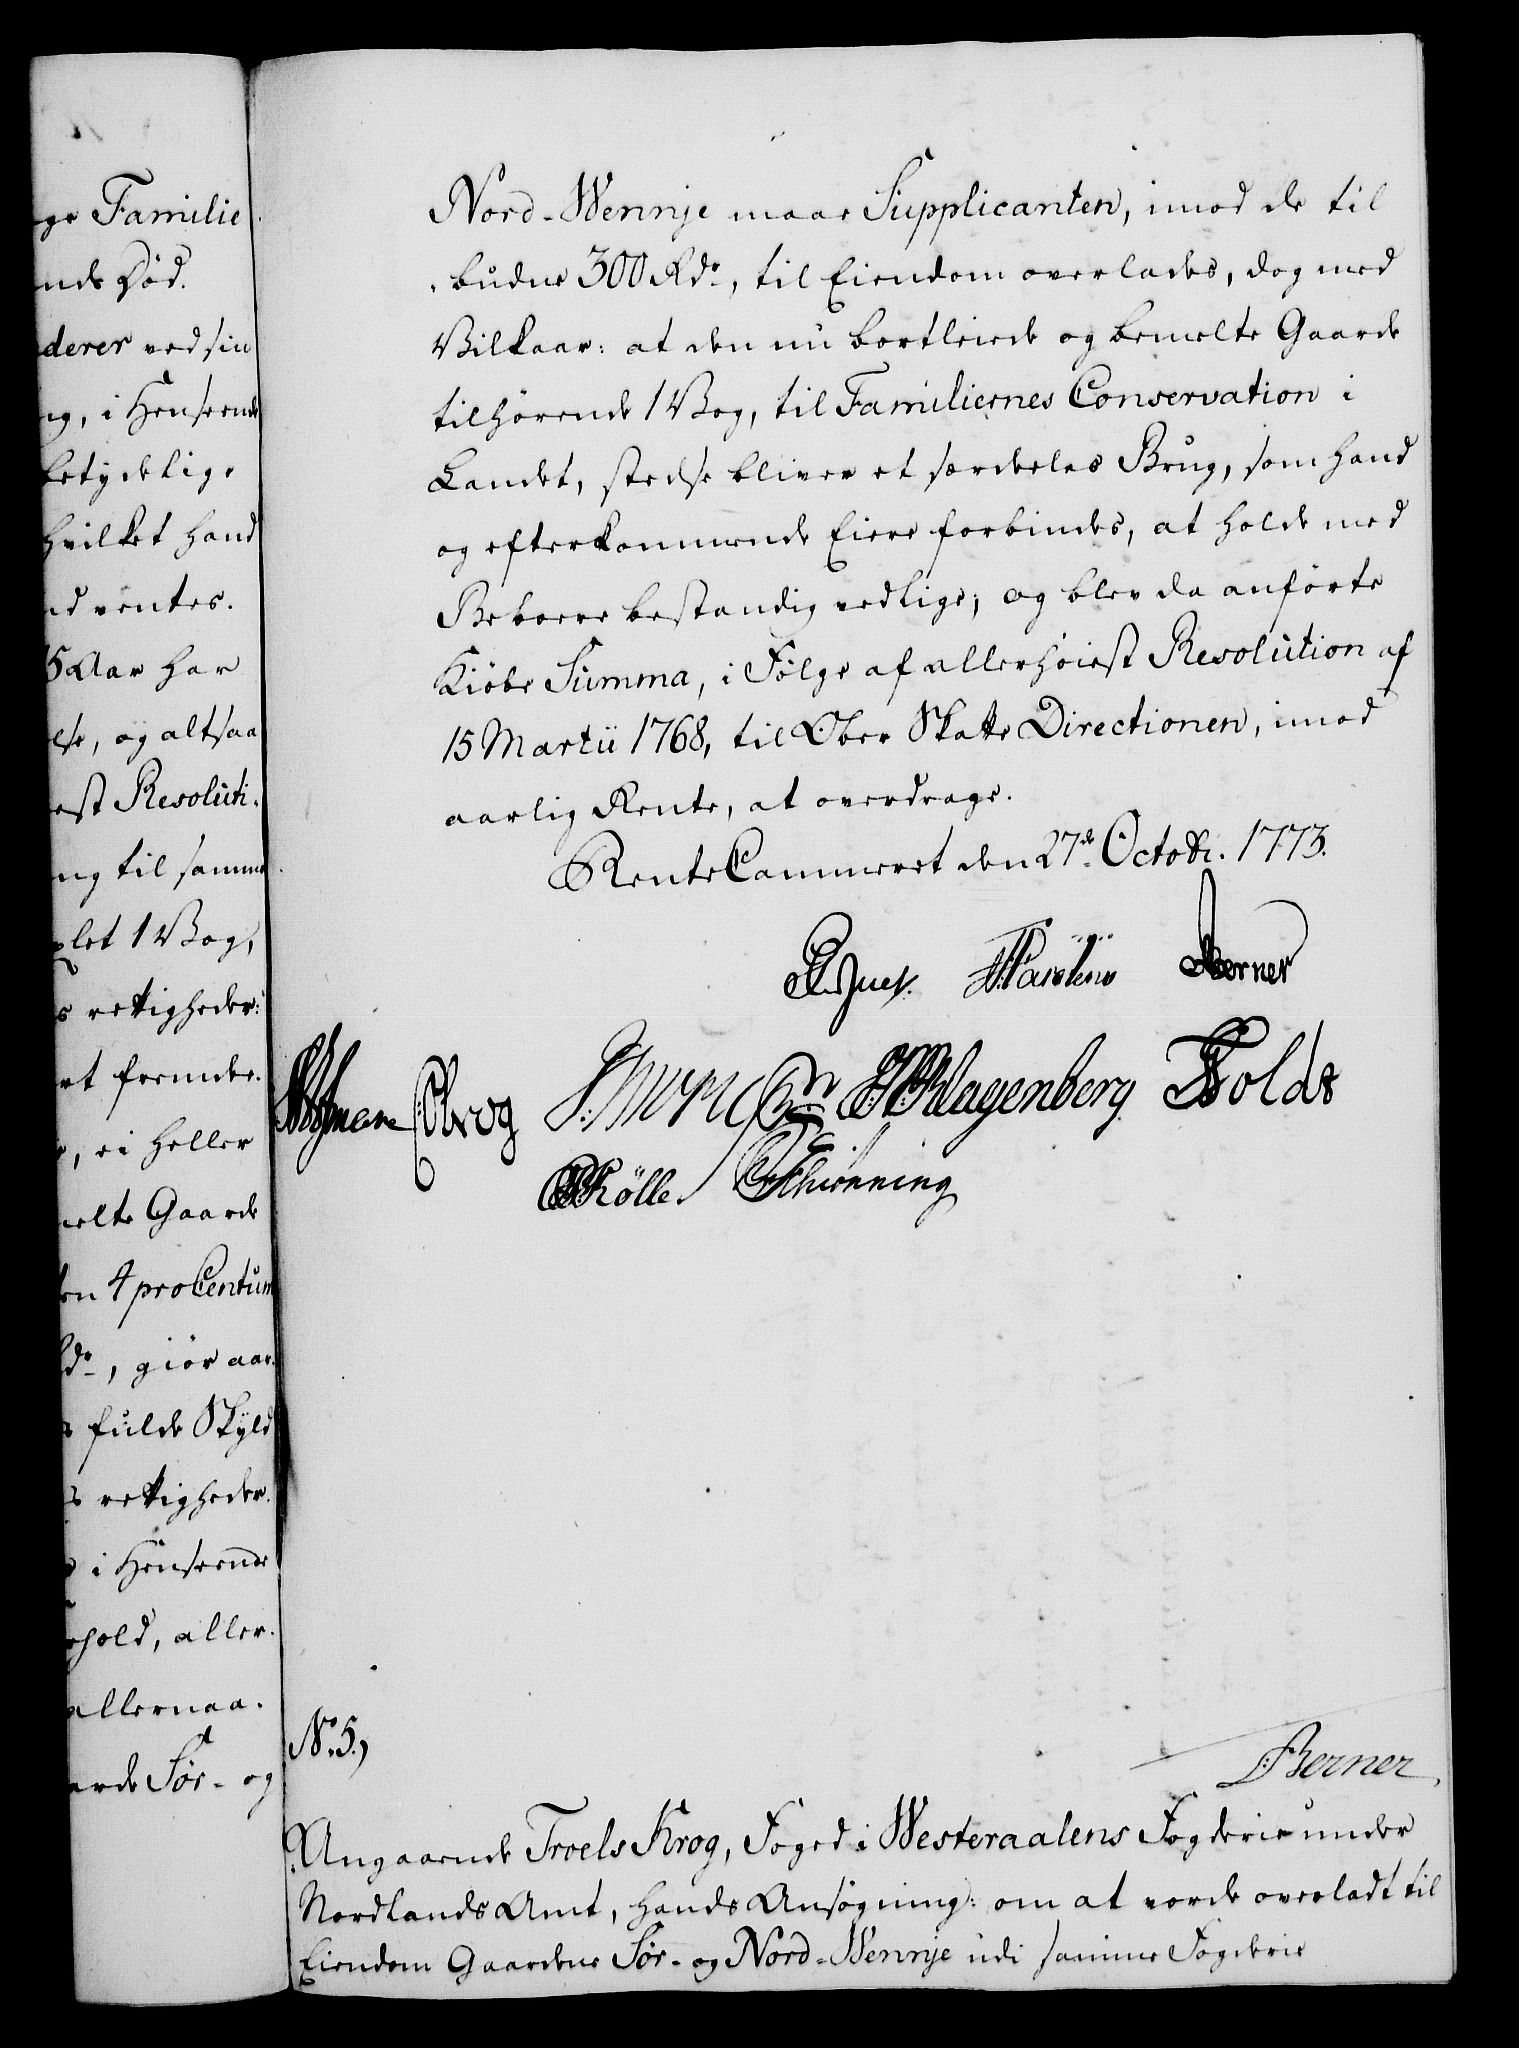 ge Familie
nds Død.
derer ved sin
ng, i Henseende
betydelige
hvilket hand
nd ventes.
5 Aar har
lse, og altsaa
est Resoluti-
ng til samme
let 1 Vog,
s rettigheder:
rt fremdr.
, ei heller
melte Gaarde
en 4 pro Centum
dr, giør aar-
s fulde Skyld
s rettigheder.
i Henseende
hold, aller-
allernaa-
arde Sør- og
Nord-Wennje maae Supplicanten, imod de til
-budne 300 Rdr, til Eiendom overlades, dog med
Vilkaar: at den nu bortleiede og bemelte Gaarde
tilhørende 1 Vog, til Familiernes Conservation i
Landet, stedse bliver et særdeeles Brug, som hand
og efterkommende Eiere forbindes, at holde med
Beboere bestandig vedlige; og blev da anførte
Kiøbe Summa, i Følge af allerhøiest Resolution af
15 Martii 1768, til Ober Skatte Directionen, imod
aarlig Rente, at overdrage.
RenteCammeret den 27de Octobr. 1773.
Berner
Klagenberg
Kølle. Schiønning
No. 5.,
Berner
Angaaende Troels Krog, Foged i Westeraalens Fogderie under
Nordlands Amt, hands Ansøgning: om at vorde overladt til
Eiendom Gaardene Sør- og Nord-Wennje udi samme Fogderie